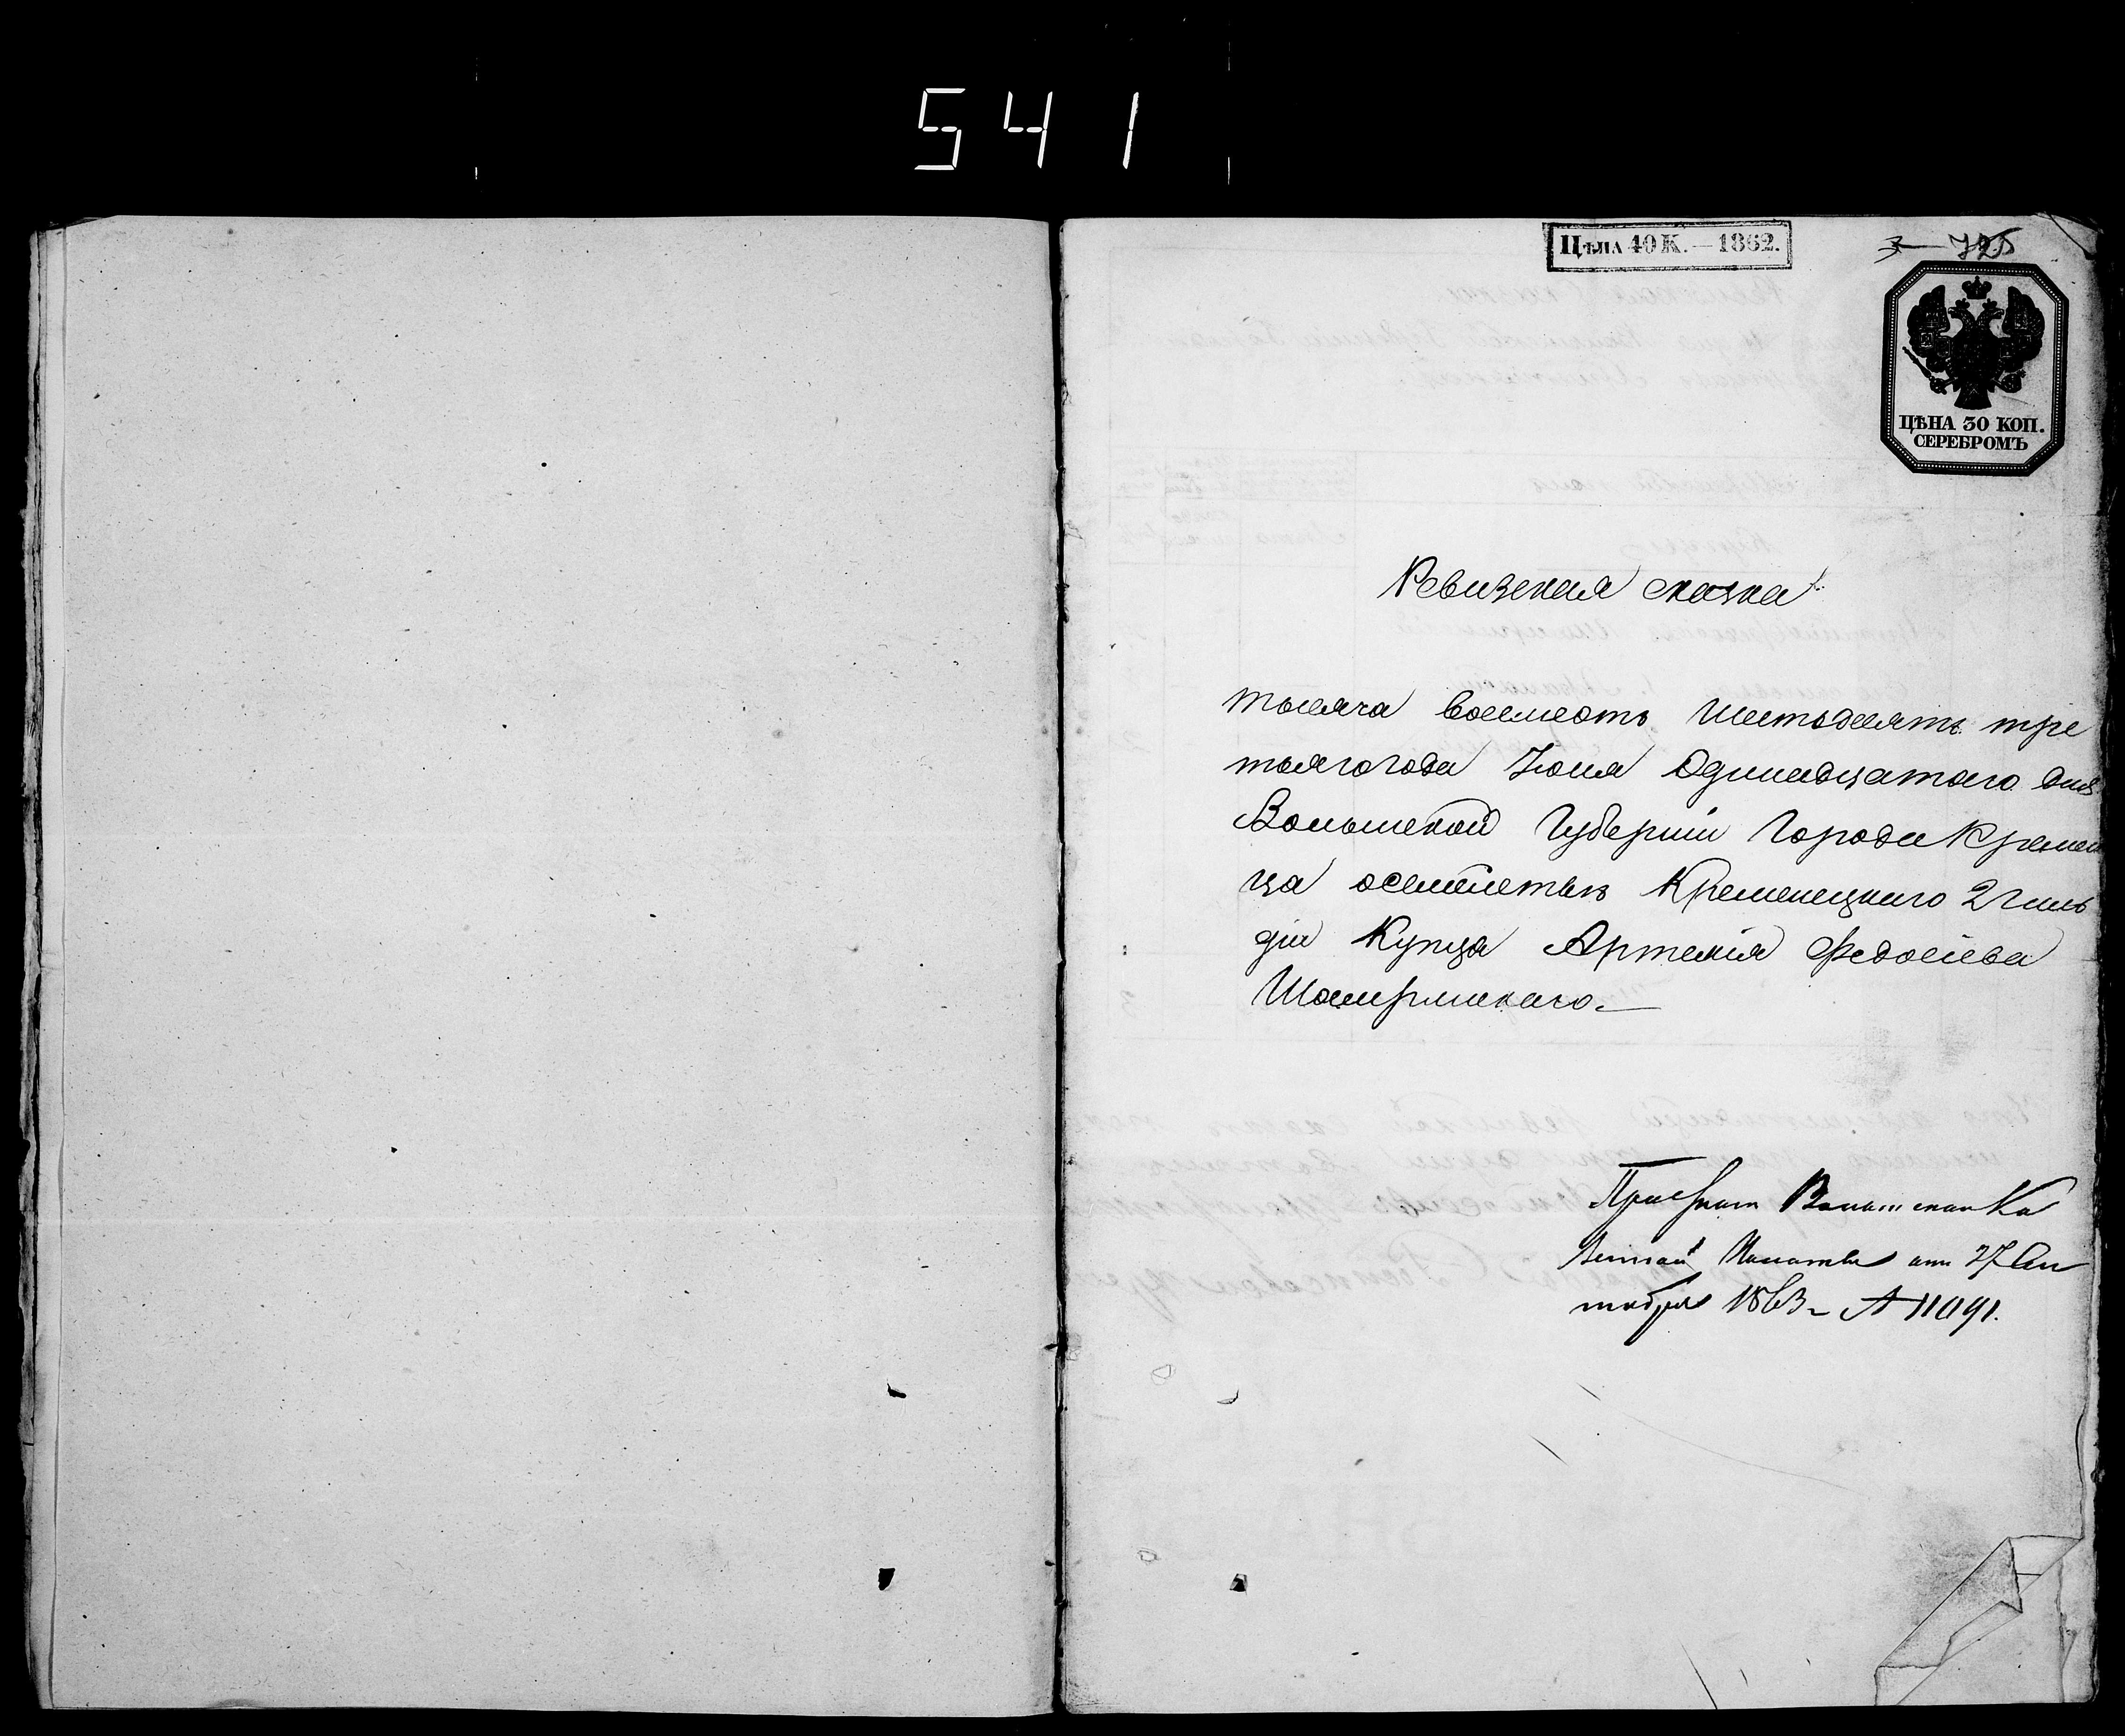 541
Цѣна 40 К. — 1862.
3 — 725
ЦѢНА 30 КОП.
СЕРЕБРОМЪ
Ревизская сказка
тысяча восемсотъ шестьдесятъ тре
тьяго года Іюня Одинадцатаго дня
Волынской Губерніи Города Кремен
ца о семействѣ Кременецкаго 2 гиль
діи Купца Артемія Федосіева
Волынской Ка
зенной Палаты отъ 27 Ок
тября 1863 №11091.